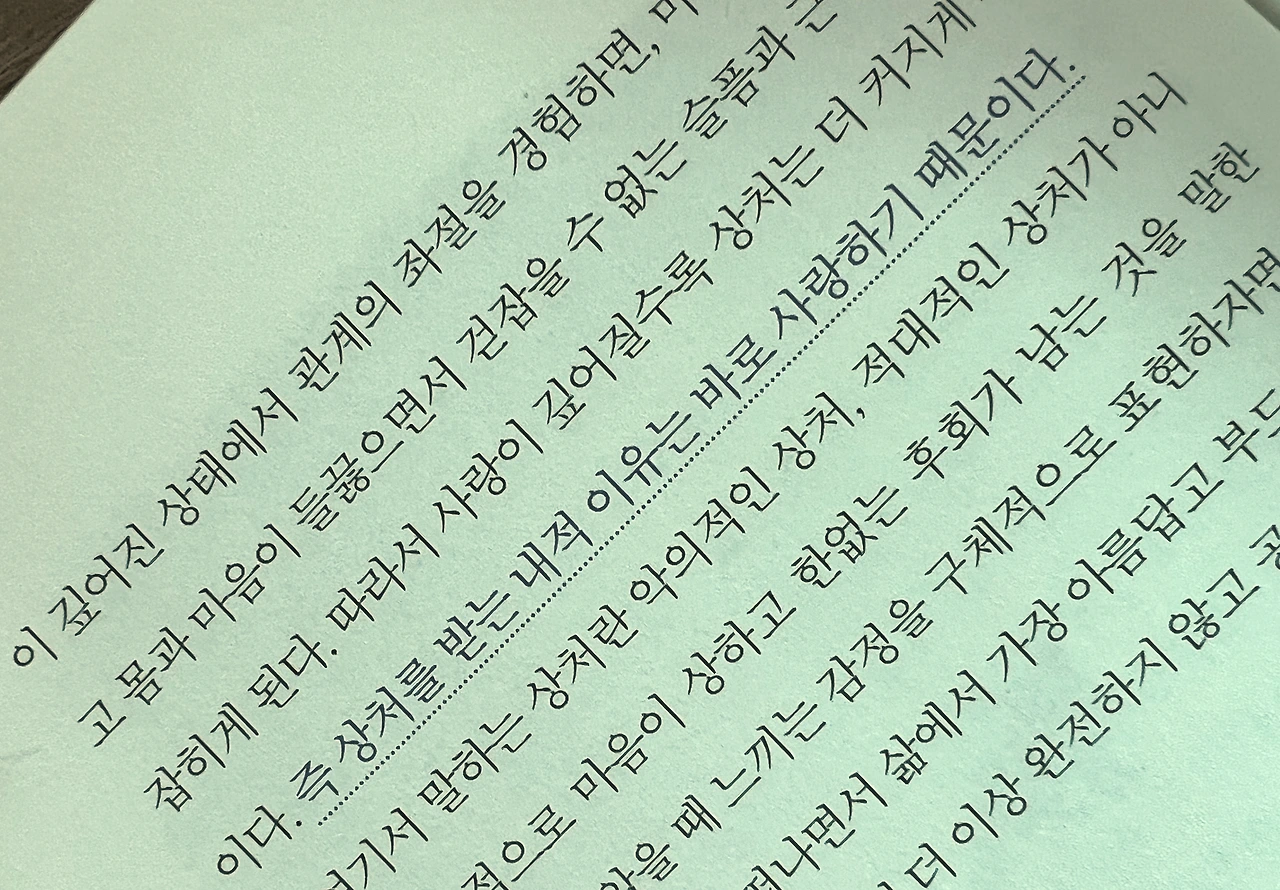 이 깊어진 상태에서 관계의 좌절을 경험하면,
고 몸과 마음이 들끓으면서 걷잡을 수 없는 슬픔과
잡히게 된다. 따라서 사랑이 깊어질수록 상처는 더 커지게
이다. 즉 상처를 받는 내적 이유는 바로 사랑하기 때문이다.
말하는 상처란 악의적인 상처, 적대적인 상처가 아니
마음이 상하고 한없는 후회가 남는 것을 말한
때 느끼는 감정을 구체적으로 표현하자면
삶에서 가장 아름답고
더 이상 완전하지 않고